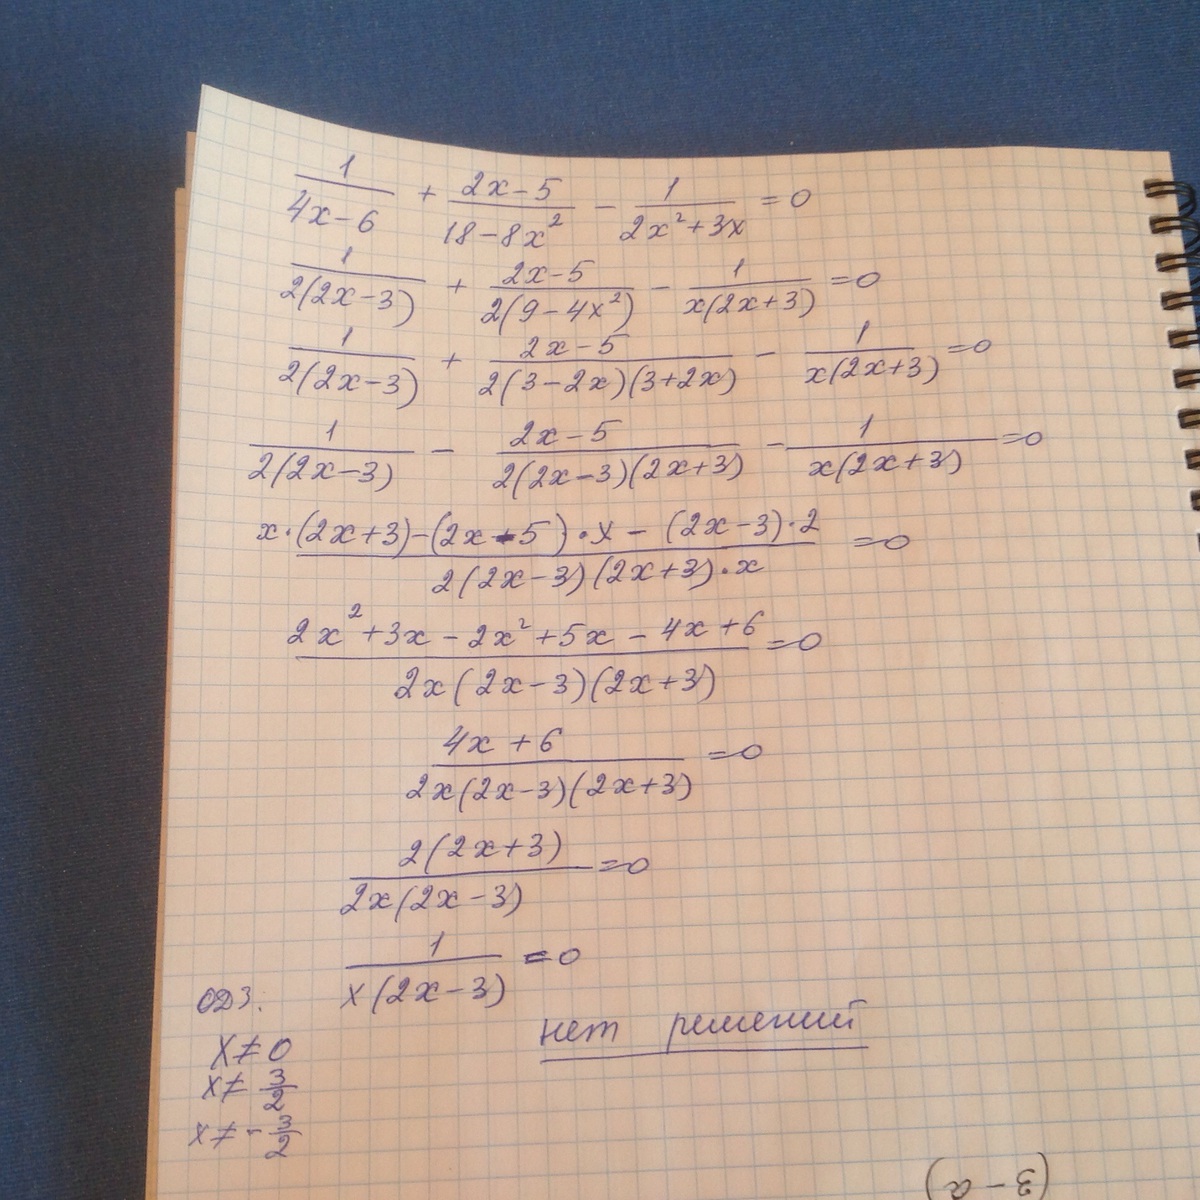 1/(4x-6) + (2x-5)/(18-8x²) - 1/(2x²+3x) = 0
1/(2(2x-3)) + (2x-5)/(2(9-4x²)) - 1/(x(2x+3)) = 0
1/(2(2x-3)) + (2x-5)/(2(3-2x)(3+2x)) - 1/(x(2x+3)) = 0
1/(2(2x-3)) - (2x-5)/(2(2x-3)(2x+3)) - 1/(x(2x+3)) = 0
(x·(2x+3)-(2x-5)·x-(2x-3)·2)/(2(2x-3)(2x+3)·x) = 0
(2x²+3x-2x²+5x-4x+6)/(2x(2x-3)(2x+3)) = 0
(4x+6)/(2x(2x-3)(2x+3)) = 0
(2(2x+3))/(2x(2x-3)) = 0
1/(x(2x-3)) = 0
ОДЗ:
x≠0
x≠3/2
x≠-3/2
нет решений
(3-a)